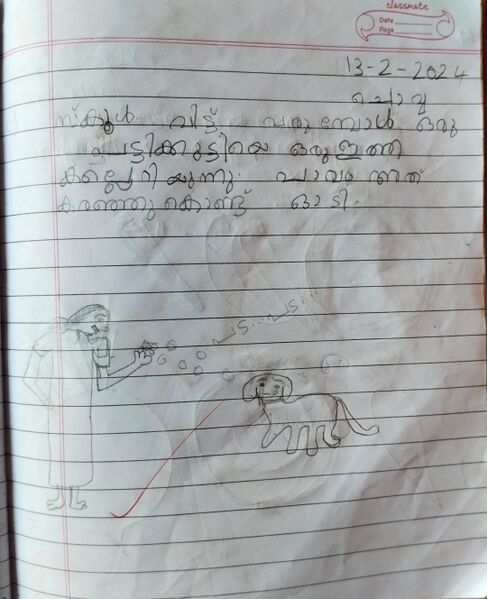 classmate
Date
Page
13-2-2024
ചൊവ്വ
സ്കൂൾ വിട്ട് വരുമ്പോൾ ഒരു
പട്ടിക്കുട്ടിയെ ഒരു ഇത്തി
കല്ലെറിയുന്നു. പാവം അത്
കരഞ്ഞു കൊണ്ട് ഓടി.
പട.. പട...